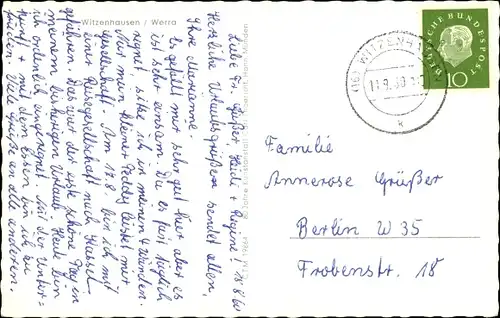 Witzenhausen / Werra
Liebe Fr. Grüßer, Heidi + Regine! 18.8.60
Herzliche Urlaubsgrüße sendet allen,
Ihre Marianne.
Es gefällt mir sehr gut hier aber es
ist sehr einsam. Da es fast täglich
regnet, sitze ich in meinen 4 Wänden.
Nur mein kleiner Teddy leistet mir
Gesellschaft. Am 17.8. bin ich mit
einer Reisegesellschaft nach Kassel
gefahren. Das war der erste schöne Tag in
meinem bisherigen Urlaub. Heute bin
ich ordentlich eingeregnet. Mit der Unter=
kunft + mit dem Essen bin ich zu=
frieden. Viele Grüße an alle anderen.
DEUTSCHE BUNDESPOST
10
(16) WITZENH
Familie
Annerose Grüßer
Berlin W 35
Frobenstr. 18